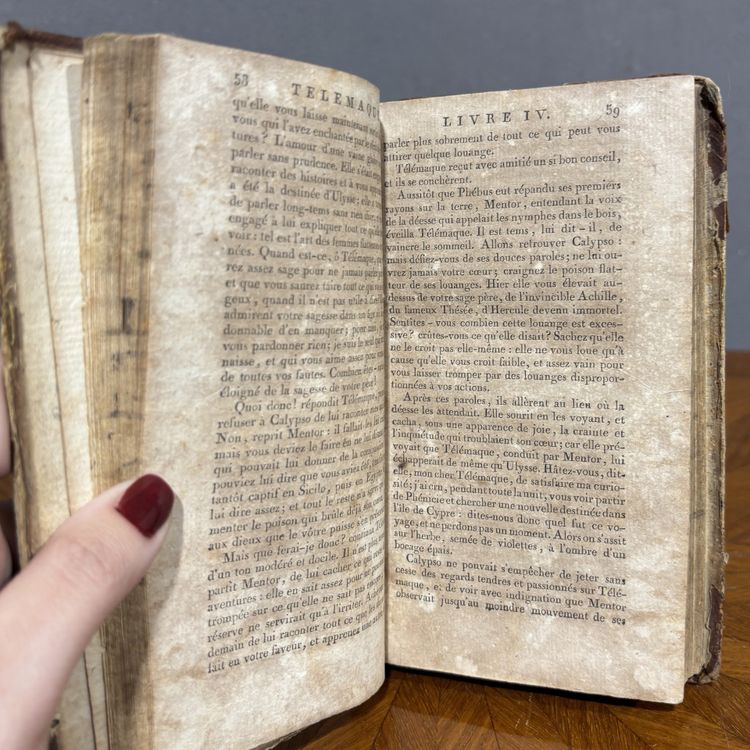 58
TELEMAQU
qu'elle vous laisse maintenant
vous qui l'avez enchantée par le
tures? L'amour d'une vaine
parler sans prudence. Elle s'était
raconter des histoires et à vous
a été la destinée d'Ulysse; elle a
de parler long-tems sans rien dire;
engagé à lui expliquer tout ce qu
voir: tel est l'art des femmes
nées. Quand est-ce, ô Télémaque,
rez assez sage pour ne jamais parler
et que vous saurez taire tout ce qui
geux, quand il n'est pas utile à
admirent votre sagesse dans un âge
donnable d'en manquer; pour
vous pardonner rien; je suis le seul
naisse, et qui vous aime assez pour
de toutes vos fautes. Combien êtes-
éloigné de la sagesse de votre père!
Quoi donc! répondit Télémaque,
refuser à Calypso de lui raconter mes
Non, reprit Mentor: il fallait les lui
mais vous deviez le faire en ne lui
qui pouvait lui donner de la compassion
pouviez lui dire que vous aviez été
tantôt captif en Sicile, puis en Egypte
lui dire assez; et tout le reste n'a
menter le poison qui brûle déjà son
aux dieux que le vôtre puisse s'en
Mais que ferai-je donc? continua
d'un ton modéré et docile. Il n'est
partit Mentor, de lui cacher ce
aventures: elle en sait assez pour
trompée sur ce qu'elle ne sait pas
réserve ne servirait qu'à l'irriter.
demain de lui raconter tout ce que les
fait en votre faveur, et apprenez une
LIVRE IV. 59
parler plus sobrement de tout ce qui peut vous
attirer quelque louange.
Télémaque reçut avec amitié un si bon conseil,
et ils se couchèrent.
Aussitôt que Phébus eut répandu ses premiers
rayons sur la terre, Mentor, entendant la voix
de la déesse qui appelait les nymphes dans le bois,
éveilla Télémaque. Il est tems, lui dit-il, de
vaincre le sommeil. Allons retrouver Calypso:
mais défiez-vous de ses douces paroles; ne lui ou-
vrez jamais votre cœur; craignez le poison flat-
teur de ses louanges. Hier elle vous élevait au-
dessus de votre sage père, de l'invincible Achille,
du fameux Thésée, d'Hercule devenu immortel.
Sentites-vous combien cette louange est exces-
sive? crûtes-vous ce qu'elle disait? Sachez qu'elle
ne le croit pas elle-même: elle ne vous loue qu'à
cause qu'elle vous croit faible, et assez vain pour
vous laisser tromper par des louanges dispropor-
tionnées à vos actions.
Après ces paroles, ils allèrent au lieu où la
déesse les attendait. Elle sourit en les voyant, et
cacha, sous une apparence de joie, la crainte et
l'inquiétude qui troublaient son cœur; car elle pré-
voyait que Télémaque, conduit par Mentor, lui
échapperait de même qu'Ulysse. Hâtez-vous, dit-
elle, mon cher Télémaque, de satisfaire ma curio-
sité; j'ai cru, pendant toute la nuit, vous voir partir
de Phénicie et chercher une nouvelle destinée dans
l'île de Cypre: dites-nous donc quel fut ce vo-
yage, et ne perdons pas un moment. Alors on s'assit
sur l'herbe, semée de violettes, à l'ombre d'un
bocage épais.
Calypso ne pouvait s'empêcher de jeter sans
cesse des regards tendres et passionnés sur Télé-
maque, et de voir avec indignation que Mentor
observait jusqu'au moindre mouvement de ses